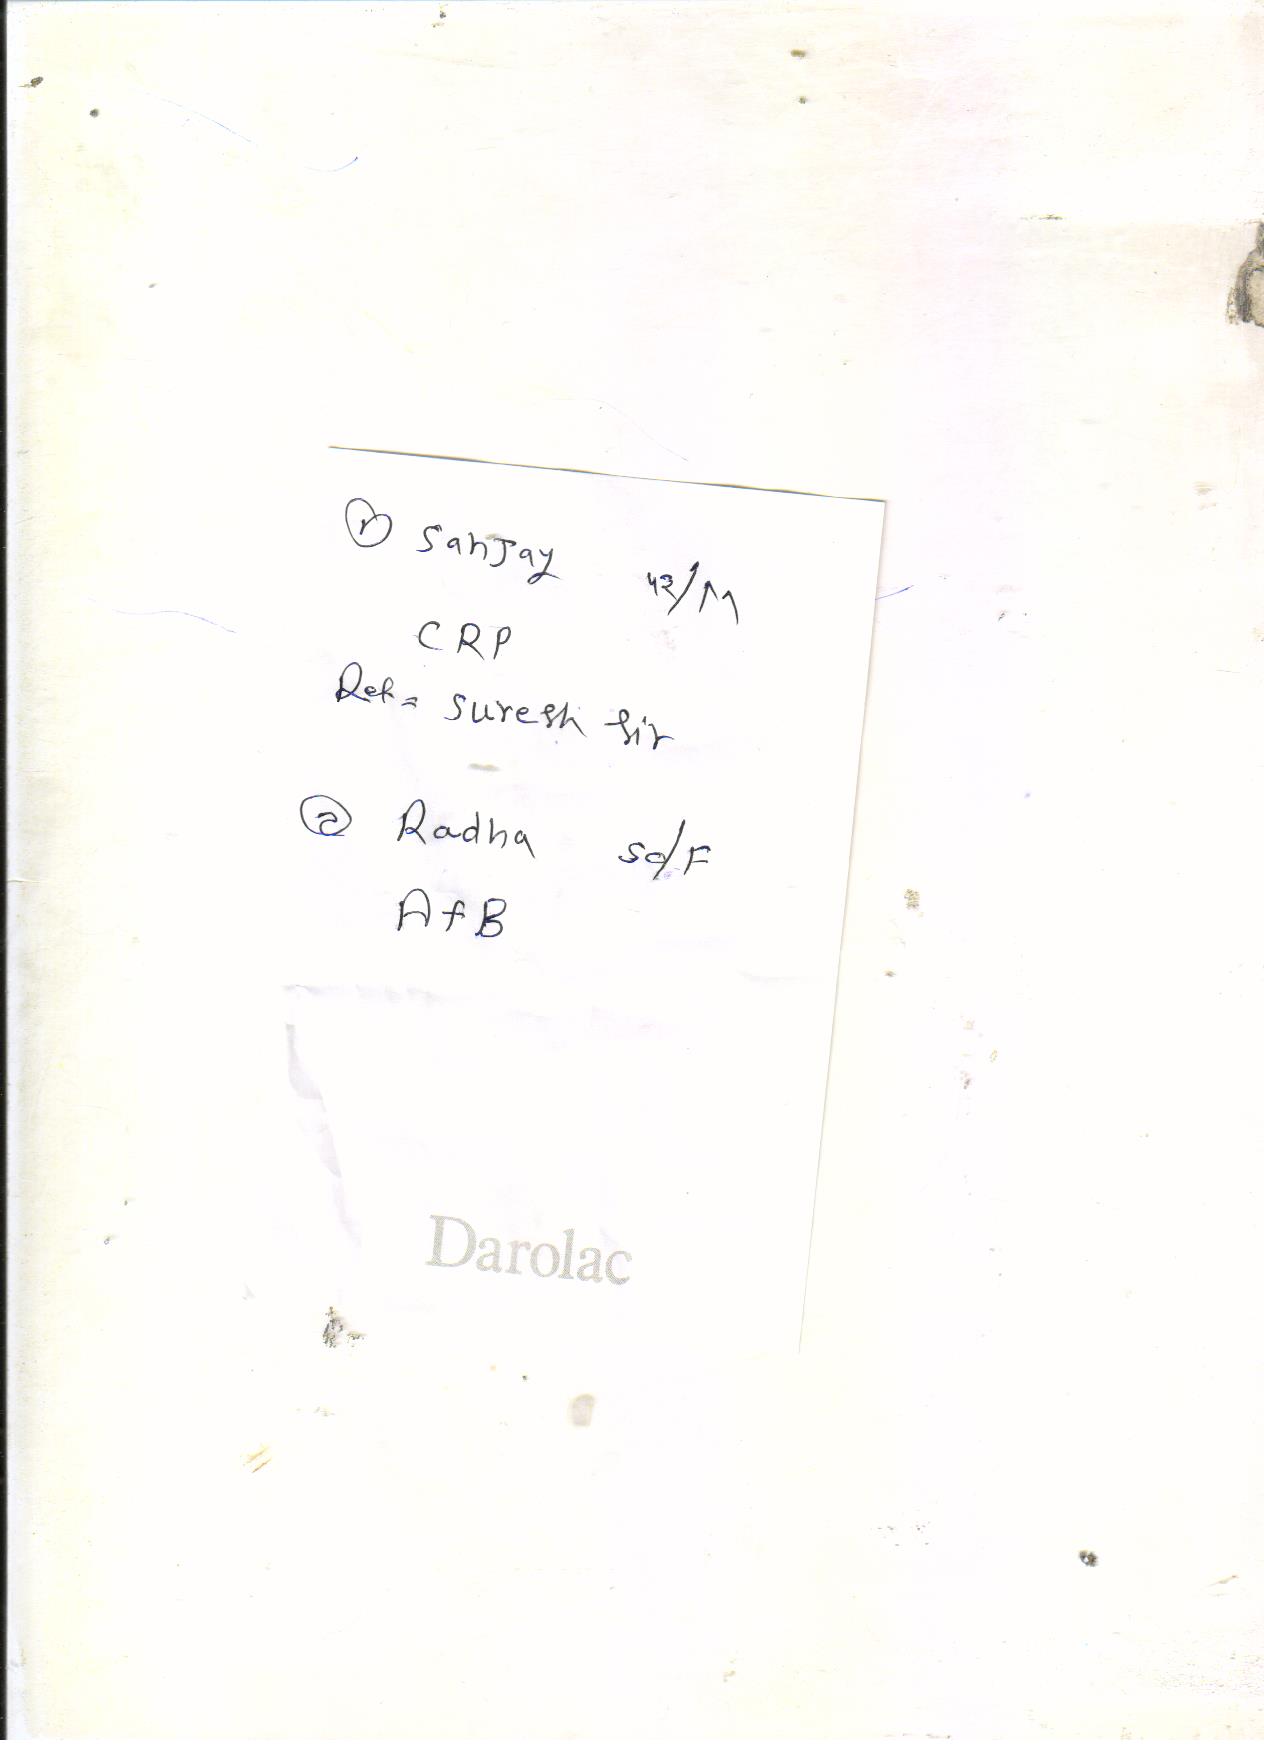 ① Sanjay 42/M
CRP
Ref = Suresh Sir
② Radha 50/F
AFB
Darolac